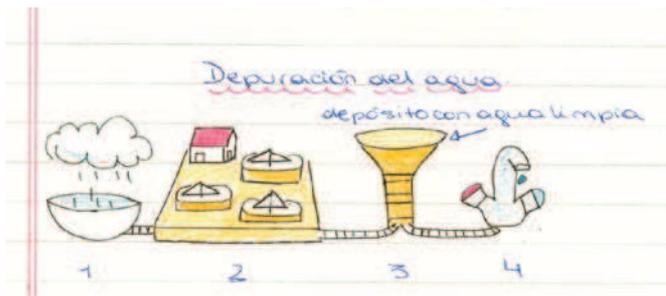 Depuración del agua
depósito con agua limpia
1 2 3 4